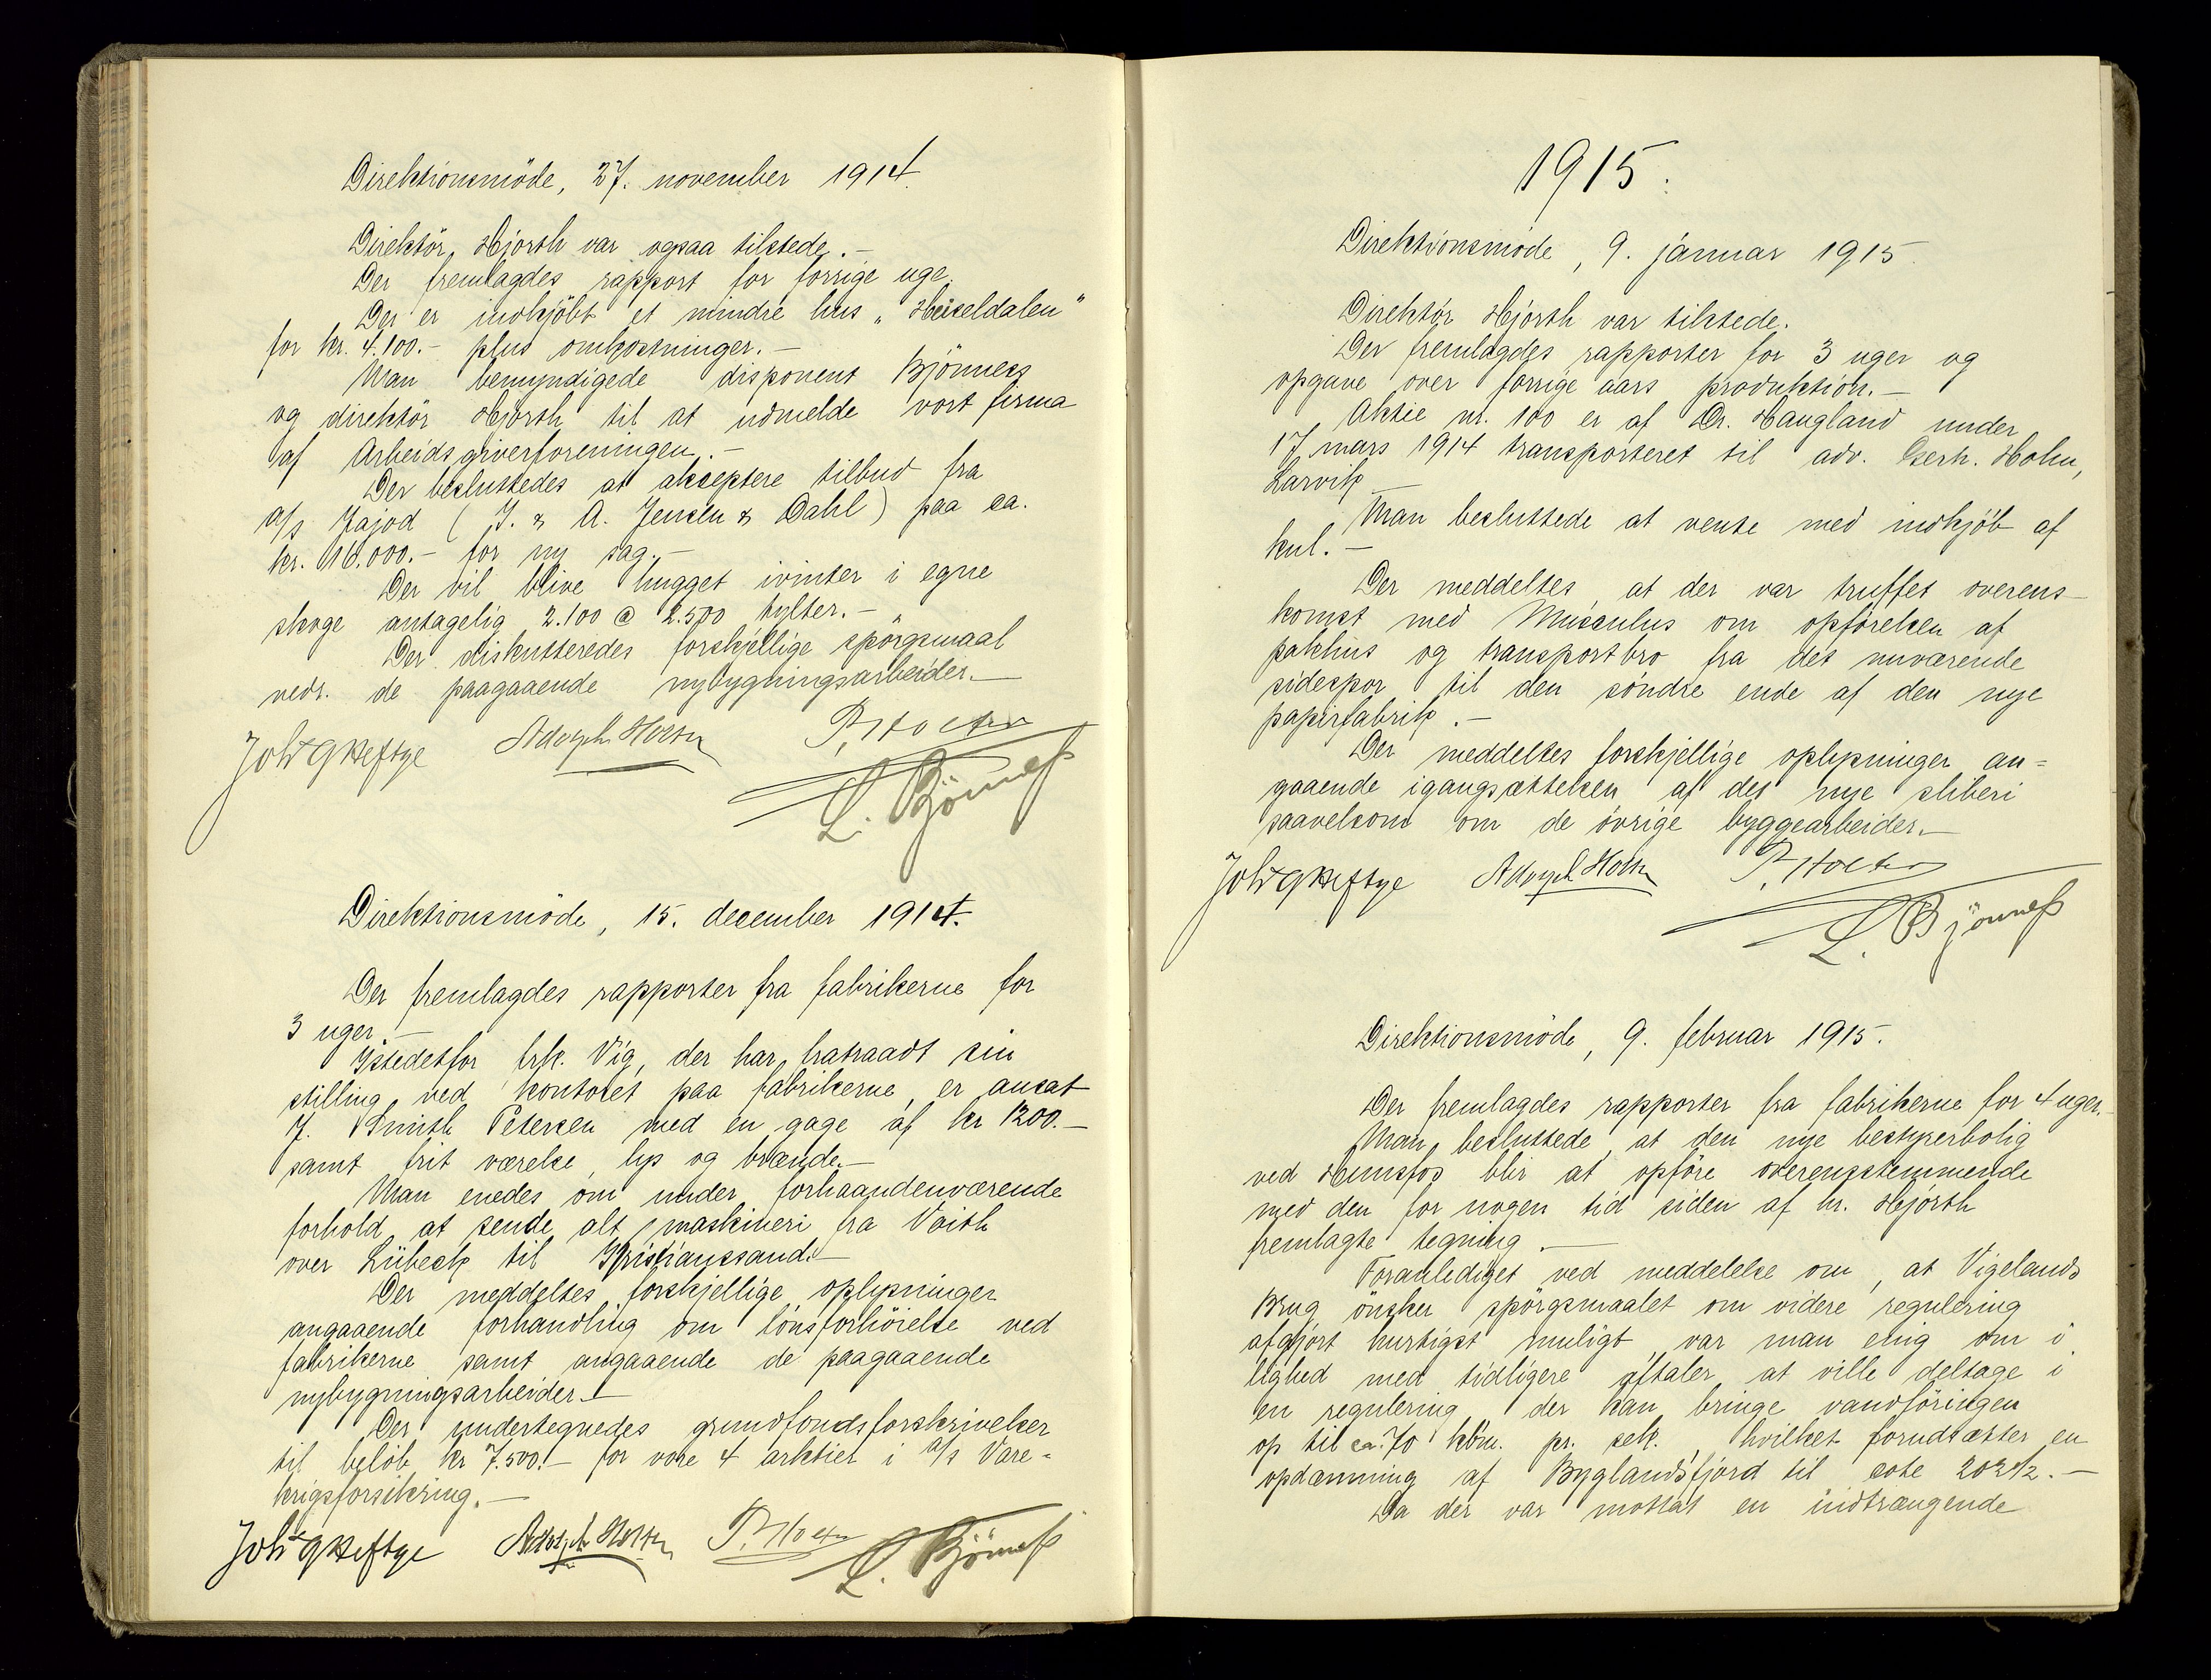 Direktionsmöde, 27. november 1914.
Direktör Hjorth var ogsaa tilstede.—
Der fremlagdes rapport for forrige uge.
Der er indkjöbt et mindre hus „Hæseldalen”
for kr. 4.100.- plus omkostninger.—
Man bemyndigede disponent Bjönness
og direktör Hjorth til at udmelde vort firma
af Arbeidsgiverforeningen.—
Der besluttedes at akseptere tilbud fra
a/s Jajod (J. & A. Jensen & Dahl) paa ca.
kr. 16.000.- for ny sag.—
Der vil blive hugget ivinter i egne
skoge antagelig 2.100 @ 2.500 tylter.—
Der diskutteredes forskjellige spörgsmaal
vedr. de paagaaende nybygningsarbeider.—
Joh's G Heftye Adolph Holter P. Holter
L. Bjönneß
Direktionsmöde, 15. december 1914.
Der fremlagdes rapporter fra fabrikerne for
3 uger.—
Istedetfor frk. Vig, der har fratraadt sin
stilling ved kontoret paa fabrikerne, er ansat
J. Smith Petersen med en gage af kr 1200.—
samt frit værelse, lys og brænde.—
Man enedes om under forhaandenværende
forhold at sende alt maskineri fra Voith
over Lübeck til Kristianssand.—
Der meddeltes forskjellige oplysninger
angaaende forhandling om lönsforhöielse ved
fabrikerne samt angaaende de paagaaende
nybygningsarbeider.—
Der undertegnedes grundfondsforskrivelser
til belöb kr 7.500.- for vore 4 arktier i A/s Vare-
krigsforsikring.—
Joh's G Heftye Adolph Holter P. Holter L. Bjönneß
1915.
Direktionsmöde, 9. januar 1915.
Direktör Hjorth var tilstede.
Der fremlagdes rapporter for 3 uger og
opgave over forrige aars produktion.—
Aktie nr. 100 er af Dr. Haugland under
17 mars 1914 transporteret til adv. Gerh. Holm,
Larvik.—
Man besluttede at vente med indkjöb af
kul.—
Der meddeltes at der var truffet overens-
komst med Musculus om opförelsen af
pakhus og transportbro fra det nuværende
sidespor til den söndre ende af den nye
papirfabrik.—
Der meddeltes forskjellige oplysninger an=
gaaende igangsættelsen af det nye sliberi
saavelsom om de övrige byggearbeider.—
Joh's G Heftye Adolph Holter P. Holter
L. Bjönneß
Direktionsmöde, 9. februar 1915.
Der fremlagdes rapporter fra fabrikerne for 4 uger.—
Man besluttede at den nye bestyrerbolig
ved Hunsfos blir at opföre overensstemmende
med den for nogen tid siden af hr. Hjorth
fremlagte tegning.—
Foranlediget ved meddelelse om, at Vigelands
Brug önsker spörgsmaalet om videre regulering
afgjort hurtigst muligt, var man enig om i
lighed med tidligere aftaler at ville deltage i
en regulering der kan bringe vandföringen
op til ca. 70 kbm. pr. sek., hvilket forudsætter en
opdæmning af Byglandsfjord til cote 202 1/2.—
Da der var mottat en indtrængende